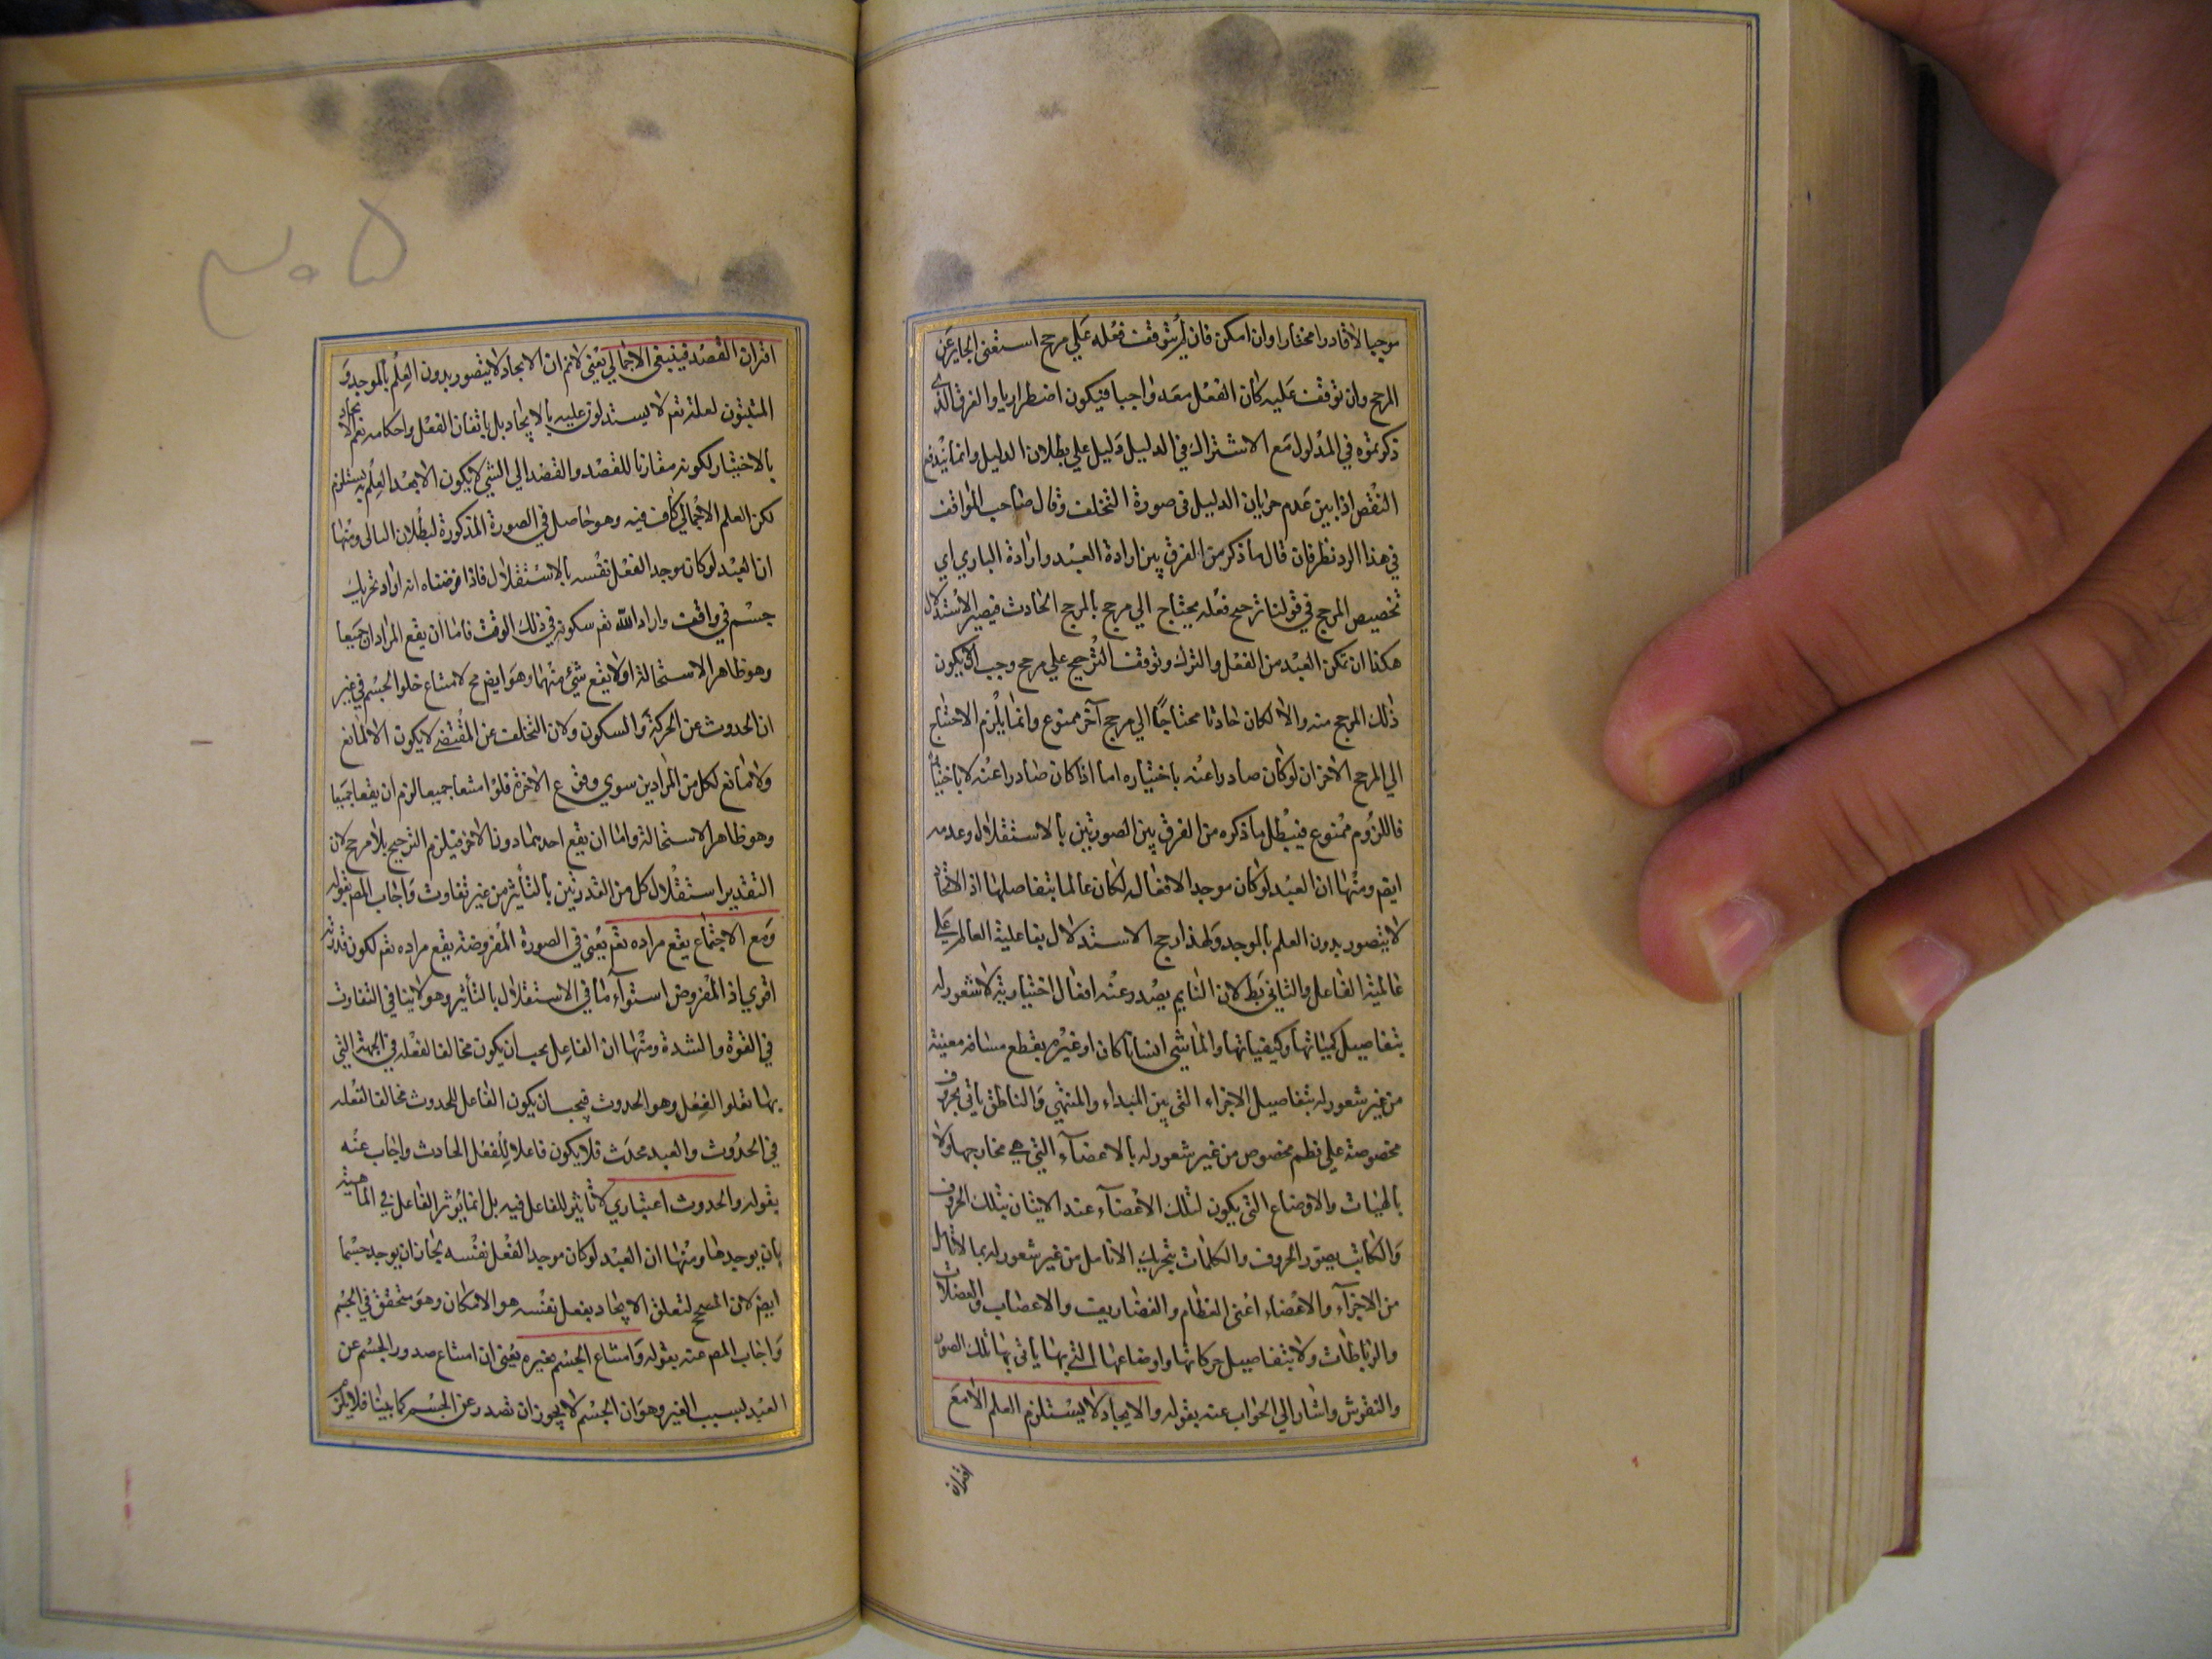 موجبا لا قادرا مختارا وان امكن فان لم يتوقف فعله علي مرجح استغني الجايز عن
المرجح وان توقف عليه كان الفعل معه واجبا فيكون اضطراريا والفرق الذي
ذكرتموه في المدلول مع الاشتراك في الدليل دليل علي بطلان الدليل وانما يندفع
النقض اذا بين عدم جريان الدليل في صورة التخلف وقال صاحب المواقف
في هذا الرد نظر فان قال ما ذكر من الفرق بين ارادة العبد وارادة الباري اي
تخصيص المرجح في قولنا ترجيح فعله يحتاج الي مرجح بالمرجح الحادث فيصير الاستدلال
هكذا ان تمكن العبد من الفعل والترك وتوقف الترجيح علي مرجح وجب ان لا يكون
ذلك المرجح منه والا لكان حادثا محتاجًا الي مرجح آخر ممنوع وانما يلزم الاحتياج
الي المرجح الاخر ان لو كان صادرا عنه باختياره اما اذا كان صادرا عنه لا باختياره
فاللزوم ممنوع فيبطل ما ذكره من الفرق بين الصورتين بالاستقلال وعدمه
ايضا ومنها ان العبد لو كان موجد الافعاله لكان عالما بتفاصيلها اذ الايجاد
لا يتصور بدون العلم بالموجد ولهذا رجح الاستدلال بفاعلية العالم علي
عالمية الفاعل والثاني بط لان النايم يصدر عنه افعال اختيارية لا شعور له
بتفاصيل كمياتها وكيفياتها والماشي انسانا كان او غيره يقطع مسافه معينة
من غير شعور له بتفاصيل الاجزاء التي بين المبداء والمنتهي والناطق ياتي بحروف
مخصوصة علي نظم مخصوص من غير شعور له بالاعضآء التي هي مخارجها ولا
بالهيئات والاوضاع التي يكون لتلك الاعضآء عند الاتيان بتلك الحروف
والكاتب يصور الحروف والكلمات بتحريك الانامل من غير شعور له بما للانامل
من الاجزآء والاعضاء اعني العظام والغضاريف والاعصاب والعضلات
والرباطات ولا بتفاصيل حركاتها واوضاعها التي بها ياتي بها تلك الصور
والنقوش واشار الي الجواب عنه بقوله والايجاد لا يستلزم العلم الا مع
اقتران
٣٠٥
اقتران القصد فينبغي الاجمالي يعني لانم ان الايجاد لا يتصور بدون العلم بالموجد و
المثبتون لعلمه تعم لا يستدلون عليه بالايجاد بل باتقان الفعل واحكامه نعم الايجاد
بالاختيار لكونه مقارنا للقصد والقصد الي الشئ لا يكون الا بعد العلم به يستلزم
لكن العلم الاجمالي كاف فيه وهو حاصل في الصورة المذكورة لبطلان التالي ومنها
ان العبد لو كان موجد الفعل نفسه بالاستقلال فاذا فرضناه انه اراد تحريك
جسم في واقت واراد الله تعم سكونه في ذلك الوقت فاما ان يقع المرادان جميعا
وهو ظاهر الاستحالة او لا يقع شئ منهما وهو ايضا مح لامتناع خلو الجسم في غير
ان الحدوث عن الحركة والسكون ولان التخلف عن المقتضي لا يكون الا لمانع
ولا مانع لكل من المرادين سوي وقوع الاخر فلو امتنعا جميعا لزم ان يقعا جميعا
وهو ظاهر الاستحالة واما ان يقع احدهما دون الاخر فيلزم الترجيح بلا مرجح لان
التقدير استقلال كل من القدرتين بالتأثير من غير تفاوت واجاب المص بقوله
ومع الاجتماع يقع مراده تعم يعني في الصورة المفروضة يقع مراده تعم لكون قدرته
اقوي اذ المفروض استوآءهما في الاستقلال بالتأثير وهو لا ينافي التفاوت
في القوة والشدة ومنها ان الفاعل يجب ان يكون مخالفا لفعله في الجهة التي
بها تعلق الفعل وهو الحدوث فيجب ان يكون الفاعل للحدوث مخالفا لفعله
في الحدوث والعبد محدث فلا يكون فاعلا للفعل الحادث واجاب عنه
بقوله والحدوث اعتباري لا تأثير للفاعل فيه بل انما يؤثر الفاعل في الماهية
بان يوجدها ومنها ان العبد لو كان موجد الفعل نفسه لجاز ان يوجد جسما
ايضا لان المصحح لتعلق الايجاد بفعل نفسه هو الامكان وهو متحقق في الجسم
واجاب المص عنه بقوله وامتناع الجسم بغيره يعني ان امتناع صدور الجسم عن
العبد لسبب الغير وهو ان الجسم لا يجوز ان تصدر عن الجسم كما بينا فلا يلزم